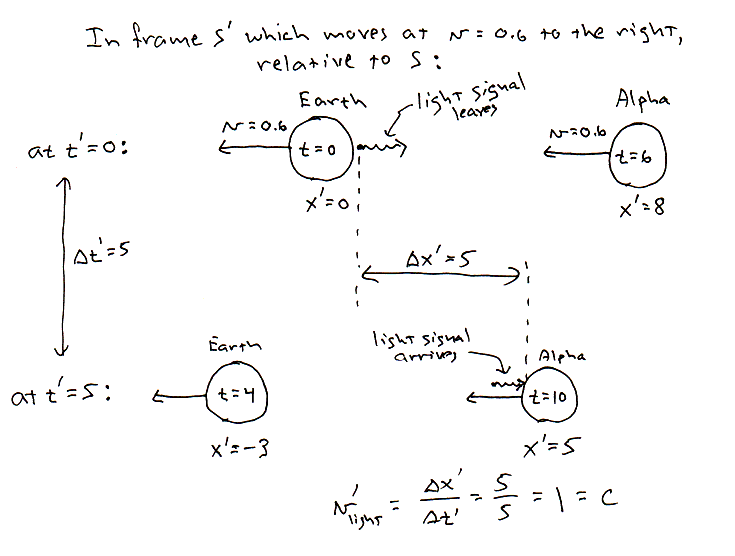 In frame S' which moves at v = 0.6 to the right,
relative to S:
Earth
light signal
leaves
Alpha
v=0.6
v=0.6
at t'=0:
t=0
t=6
x'=0
x'=8
Δt'=5
Δx'=5
Earth
light signal
arrives
Alpha
at t'=5:
t=4
t=10
x'=-3
x'=5
v'light = Δx'/Δt' = 5/5 = 1 = c